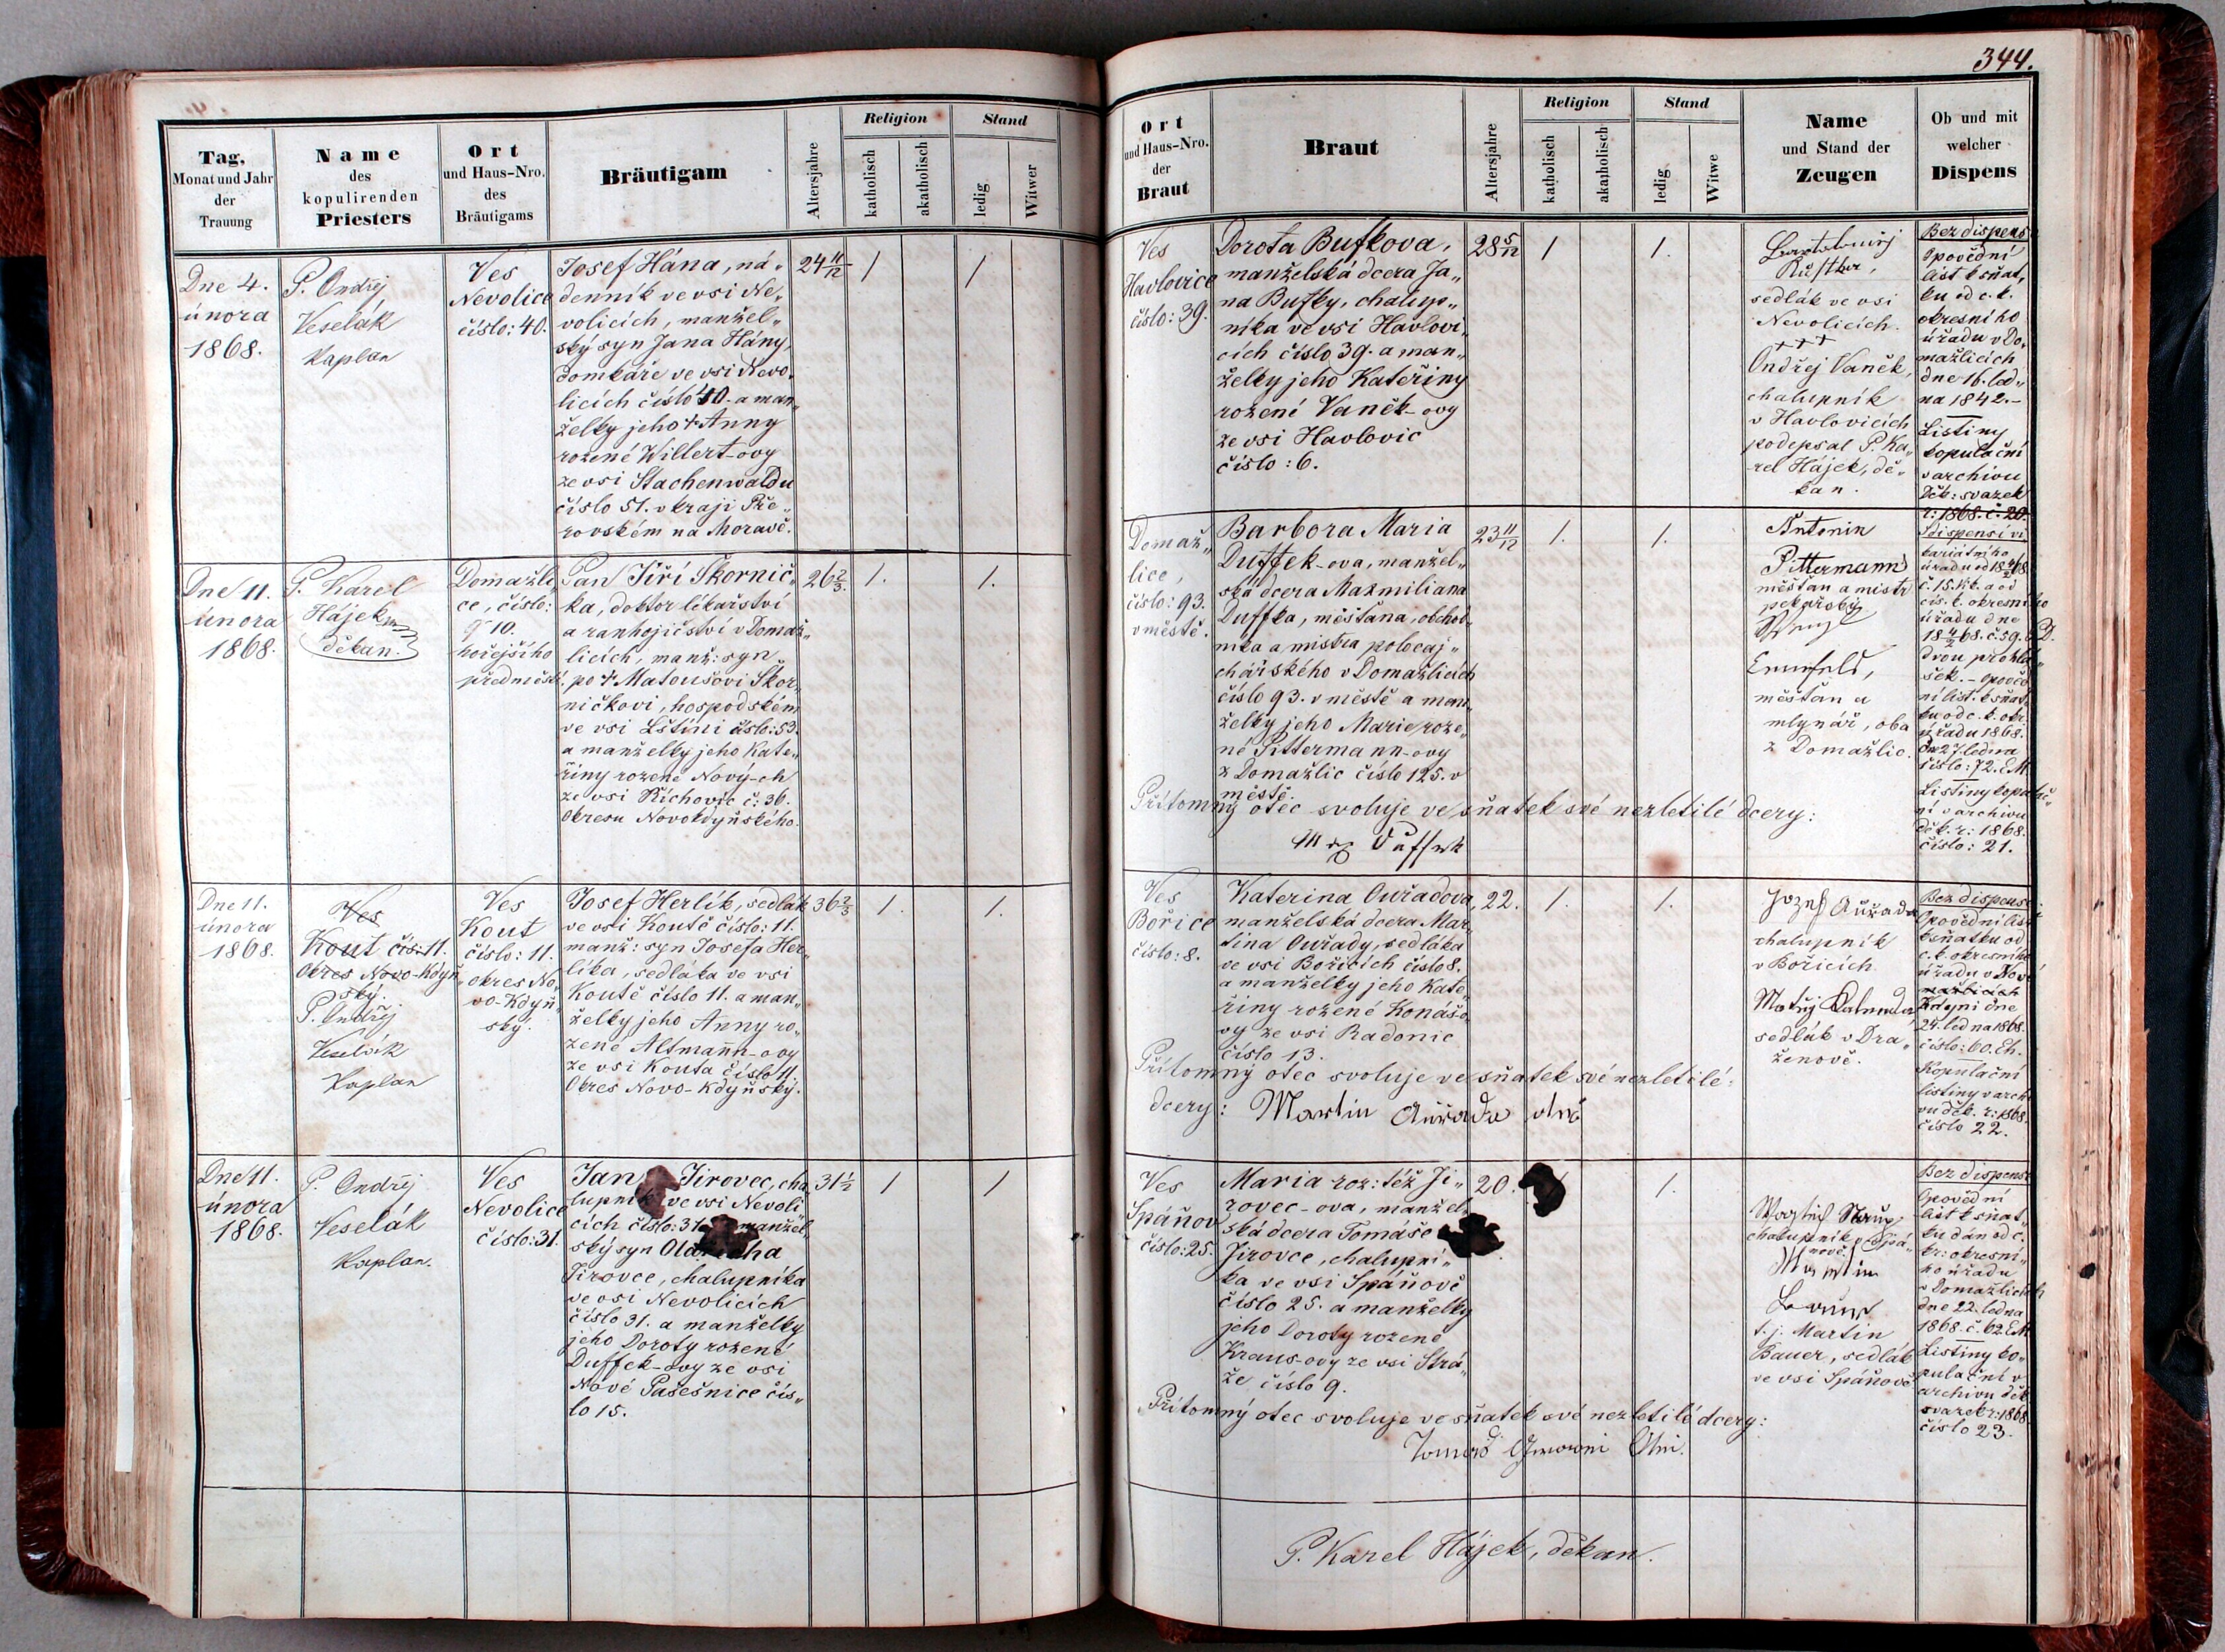 344.
Tag,
Monat und Jahr
der
Trauung
Name
des
kopulirenden
Priesters
Ort
und Haus-Nro.
des
Bräutigams
Bräutigam
Altersjahre
Religion
katholisch
akatholisch
Stand
ledig
Witwer
Ort
und Haus-Nro.
der
Braut
Braut
Altersjahre
Religion
katholisch
akatholisch
Stand
ledig
Witwe
Name
und Stand der
Zeugen
Ob und mit
welcher
Dispens
Dne 4.
února
1868.
P. Ondřej
Veselák
Kaplan
Ves
Nevolice
číslo: 40.
Josef Hána, ná„
denník ve vsi Ne„
volicích, manžel„
ský syn Jana Hány,
domkáře ve vsi Nevo„
licích číslo 40. a man„
želky jeho † Anny
rozené Willert-ovy
ze vsi Stachenwaldu
číslo 51. v kraji Pře„
rovském na Moravě.
24 11/12
1
1
Ves
Havlovice
číslo: 39.
Dorota Bufkova,
manželská dcera Ja„
na Bufky, chalup„
níka ve vsi Havlovi„
cích číslo 39. a man„
želky jeho Kateřiny
rozené Vaněk-ovy
ze vsi Havlovic
číslo: 6.
28 5/12
1
1.
sedlák ve vsi
Nevolicích.
+++
Ondřej Vaněk,
chalupník
v Havlovicích
podepsal P. Ka„
rel Hájek, dě„
kan.
Bez dispens
Opovědní
list k sňat„
ku od c. k.
okresního
úřadu v Do„
mažlicích
dne 16. led„
na 1842.
Listiny
kopulační
v archivu
děk: svazek
r: 1868. č. 20.
Dne 11.
února
1868.
P. Karel
Hájek
děkan.
Domažli„
ce, číslo:
10.
hořejšího
předměstí.
Pan Jiří Škornič„
ka, doktor lékařství
a ranhojičství v Domaž„
licích, manž: syn
po † Matoušovi Škor„
ničkovi, hospodském
ve vsi Lštíni číslo: 53.
a manželky jeho Kate„
řiny rozené Nový-ch
ze vsi Říchovic č: 36.
Okresu Novokdyňského.
26 2/3.
1.
1.
Domaž„
lice,
číslo: 93.
v městě.
Barbora Maria
Duffek-ova, manžel„
ská dcera Maxmiliana
Duffka, měšťana, obchod„
níka a mistra
chářského v Domažlicích
číslo 93. v městě a man„
želky jeho Marie roze„
né Pittermann-ovy
z Domažlic číslo 125. v
městě.
23 11/12
1.
1.
Přítomný otec svoluje ve sňatek své nezletilé dcery:
Duffek
Antonin
Pittermann
měšťan a mistr
pekařský
měšťan a
mlynář, oba
z Domažlic.
S dispensí vi„
kariátního
úřadu
č. 15. a od
cís. k. okresního
úřadu dne
č. 59.
dvou prohlá„
šek. – Opověd„
ní list. k sňat„
ku od c. k. okr.
úřadu 1868.
27 ledna
číslo: 72.
Listiny kopulač„
ní v archivu
děk. r: 1868.
číslo: 21.
Dne 11.
února
1868.
Ves
Kout čís. 11.
Okres Novo-Kdyň
ský.
P. Ondřej
Veselák
Kaplan
Ves
Kout
číslo: 11.
okres No„
vo-Kdyň„
ský.
Josef Herlík, sedlák
ve vsi Koutě číslo: 11.
manž: syn Josefa Her„
líka, sedláka ve vsi
Koutě číslo 11. a man„
želky jeho Anny ro„
zené Altmann-ovy
ze vsi Kouta číslo 11.
Okres Novo-Kdyňský.
36 2/3
1.
1.
Ves
Bořice
číslo: 8.
Katerina Ouřadova,
manželská dcera Mar„
tina Ouřady, sedláka
ve vsi Bořicích číslo 8.
a manželky jeho Kate„
řiny rozené Konášo„
vy ze vsi Radonic
číslo 13.
22.
1.
1.
Přítomný otec svoluje ve sňatek své nezletilé
dcery: Martin Auřada otec
Jozef Auřada
chalupník
v Bořicích.
Matěj
sedlák v Dra„
ženově.
Bez dispense
Opovědní list
k sňatku od
c. k. okresního
úřadu v Nové
Kdyni dne
24. ledna 1868.
číslo: 60.
Kopulační
listiny v archi
vu děk. r: 1868.
číslo 22.
Dne 11.
února
1868.
P. Ondřej
Veselák
Kaplan.
Ves
Nevolice
číslo: 31.
Jan Jirovec, cha„
lupník ve vsi Nevoli„
cích číslo: 31. manžel„
ský syn
Jirovce, chalupníka
ve vsi Nevolicích
číslo 31. a manželky
jeho Doroty rozené
Duffek-ovy ze vsi
Nové Pašešnice čís„
lo 15.
31 1/2
1
1
Ves
Spáňov
číslo: 25.
Maria roz: též Ji„
rovec-ova, manžel„
ská dcera Tomáše
Jirovce, chalupní„
ka ve vsi Spáňově
číslo 25. a manželky
jeho Doroty rozené
Kraus-ovy ze vsi Strá„
že číslo 9.
20.
1.
Přítomný otec svoluje ve sňatek své nezletilé dcery:
chalupník v Spá„
nově.
Martin
t. j. Martin
Bauer, sedlák
ve vsi Spáňově
Bez dispense
Opovědní
list k sňat„
ku dán od c.
kr: okresní„
ho úřadu
v Domažlicích
dne 22. ledna
1868. č. 62.
Listiny ko„
pulační v
archivu děk
svazek r: 1868
číslo 23.
P. Karel Hájek, děkan.